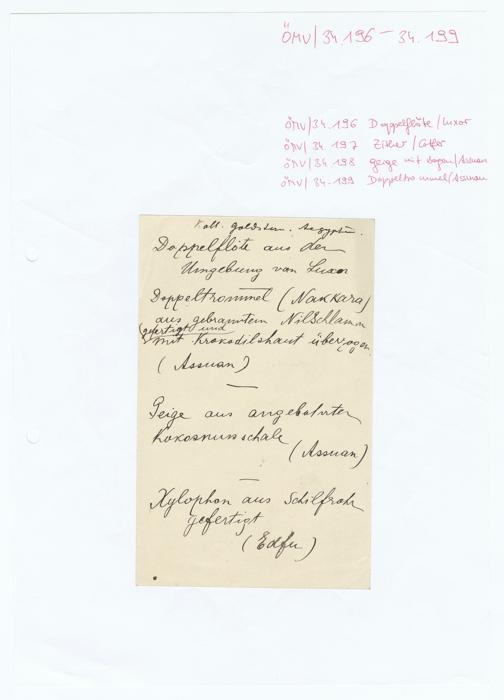 ÖMV/34.196 – 34.199
ÖMV/34.196 Doppelflöte/Luxor
ÖMV/34.197 Zither/
ÖMV/34.198 Geige mit Bogen/Assuan
ÖMV/34.199 Doppeltrommel/Assuan
Koll. Goldstern. Aegypten.
Doppelflöte aus der
Umgebung von Luxor
Doppeltrommel (Nakkara)
aus gebranntem NilSchlamm
gefertigt und
mit Krokodilshaut überzogen.
(Assuan)
Geige aus angebohrter
Kokosnusschale
(Assuan)
Xylophon aus Schilfrohr
gefertigt
(Edfu)